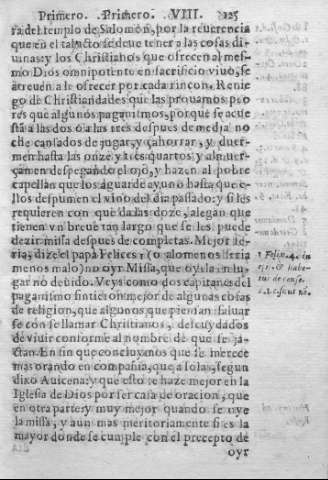 Primero. Primero. VIII. 125
ra del templo de Salomon, por la reuerencia
que en el tal justo se deue tener a las cosas di-
uinas: y los Christianos que ofrecen al mes-
mo Dios omnipotente en sacrificio viuo, se
atreuen a le ofrecer por cada rincon. Renie
go de Christiandades que las prouamos pio
res que algunos paganismos, porque se acue
sta a las dos o a las tres despues de media no
che cansados de jugar, y çahorrar, y duer-
men hasta las onze y tres quartos: y almuer-
çan en despegando el ojo, y hazen al pobre
capellan que los aguarde ayuno hasta que e-
llos despumen el vino del dia passado: y si les
requieren con que da las doze, alegan que
tienen vn breue tan largo que se les puede
dezir missa despues de completas. Mejor se-
ria, dize el papa Felice 1 (o alomenos seria
menos malo) no oyr Missa, que oyrla en lu-
gar no deuido. Veys como dos capitanes del
paganismo sintieron mejor de algunas cosas
de religion, que algunos que piensan saluar
se con se llamar Christianos, descuydados
de viuir conforme al nombre de que se ja-
ctan. En fin que concluymos que se merece
mas orando en compañia, que a solas, segun
dixo Auicena: y que esto se haze mejor en la
Iglesia de Dios por ser casa de oracion, que
en otra parte: y muy mejor quando se oye
la missa, y aun mas meritoriamente si es la
mayor donde se cumple con el precepto de
oyr
1 Felix. 4. in